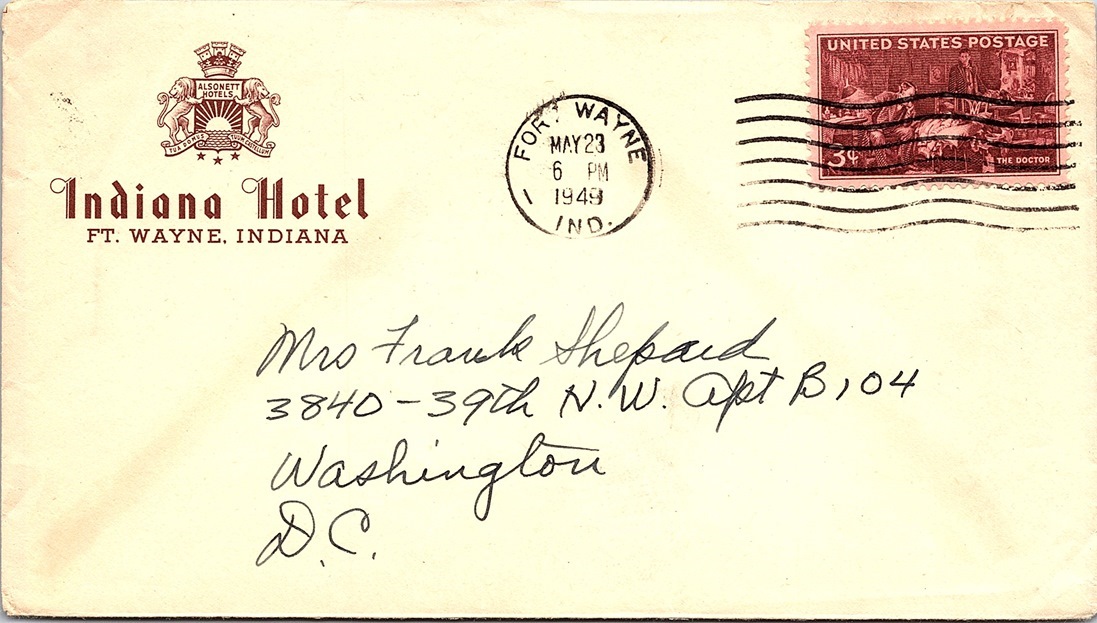 ALSONETT
HOTELS
TUA DOMUS TUUM CASTELLUM
Indiana Hotel
FT. WAYNE, INDIANA
FORT WAYNE
MAY 23
6 PM
1949
IND.
1
UNITED STATES POSTAGE
3¢
THE DOCTOR
Mrs Frank Shepard
3840-39th N.W. Apt B104
Washington
D.C.